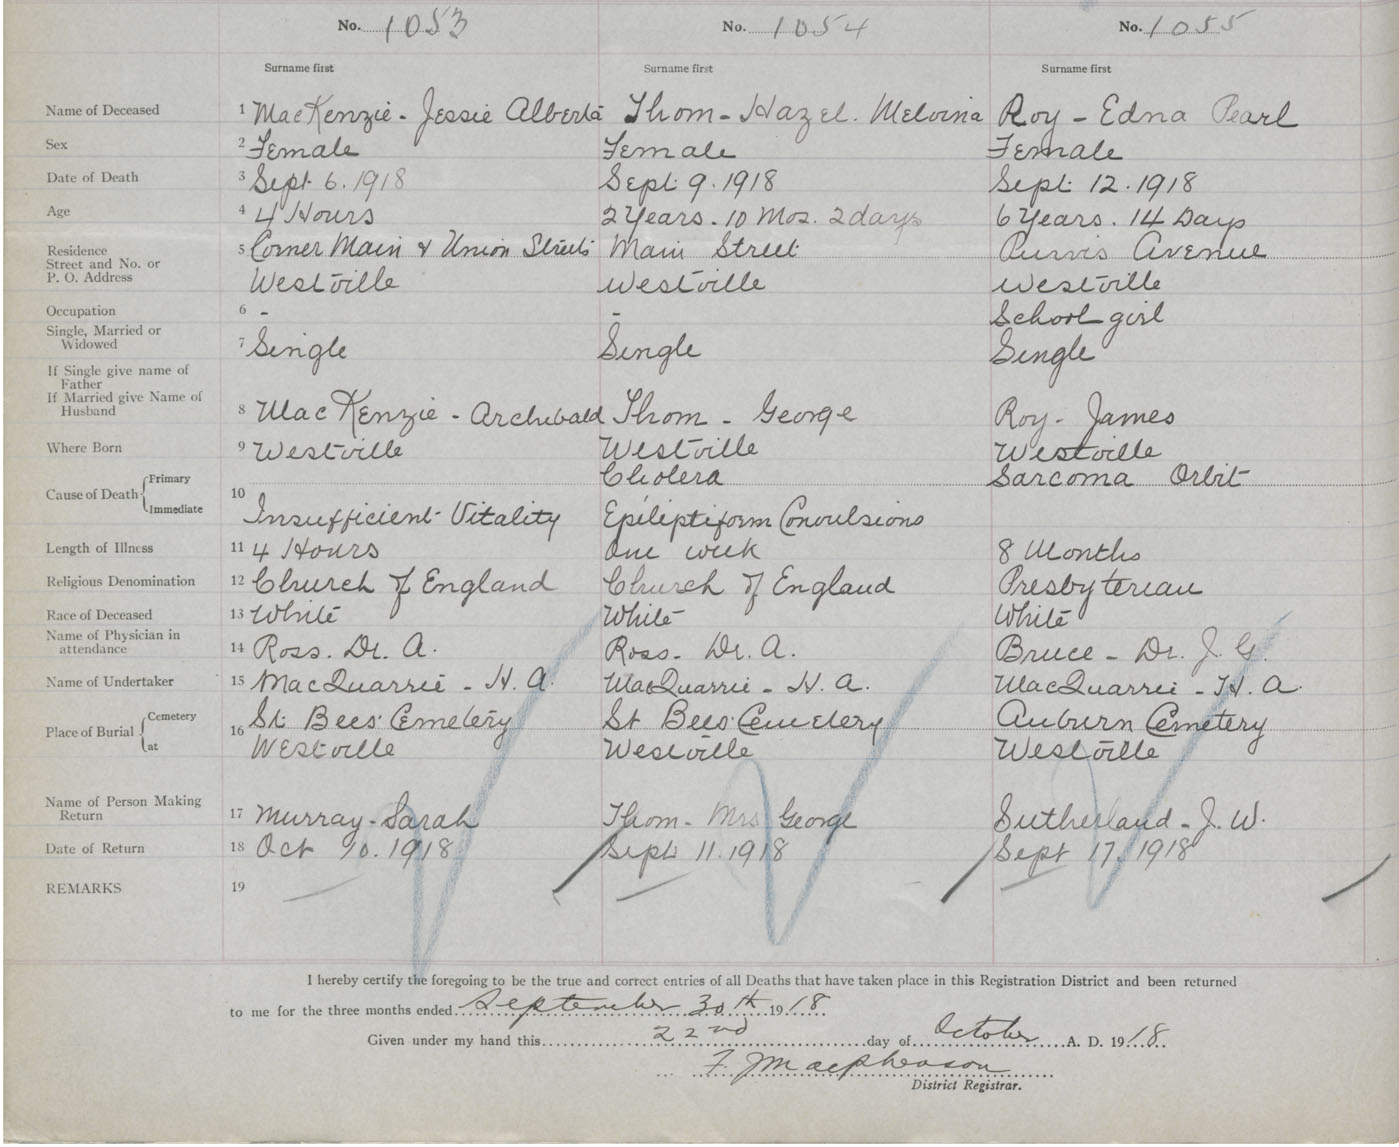 No. 1053 No. 1054 No. 1055
Surname first Surname first Surname first
Name of Deceased 1 MacKenzie - Jessie Alberta Thom - Hazel. Melvina Roy - Edna Pearl
Sex 2 Female Female Female
Date of Death 3 Sept. 6. 1918 Sept. 9. 1918 Sept. 12. 1918
Age 4 4 Hours 2 Years. 10 Mos. 2 days 6 Years. 14 Days
Residence
Street and No. or 5 Corner Main & Union Streets Main Street Purvis Avenue
P. O. Address Westville Westville Westville
Occupation 6 - - School girl
Single, Married or
Widowed 7 Single Single Single
If Single give name of
Father
If Married give Name of
Husband 8 MacKenzie - Archibald Thom - George Roy - James
Where Born 9 Westville Westville Westville
Cause of Death Primary 10 Cholera Sarcoma Orbit
Immediate Insufficient Vitality Epileptiform Convulsions
Length of Illness 11 4 Hours One week 8 Months
Religious Denomination 12 Church of England Church of England Presbyterian
Race of Deceased 13 White White White
Name of Physician in
attendance 14 Ross. Dr. A. Ross. Dr. A. Bruce - Dr. J. G.
Name of Undertaker 15 MacQuarrie - H. A. MacQuarrie - H. A. MacQuarrie - H. A.
Place of Burial Cemetery 16 St. Bees Cemetery St Bees Cemetery Auburn Cemetery
at Westville Westville Westville
Name of Person Making
Return 17 Murray - Sarah Thom - Mrs George Sutherland - J. W.
Date of Return 18 Oct 10. 1918 Sept. 11. 1918 Sept 17. 1918
REMARKS 19
I hereby certify the foregoing to be the true and correct entries of all Deaths that have taken place in this Registration District and been returned
to me for the three months ended September 30th 1918
Given under my hand this 22nd day of October A. D. 1918.
F. J. Macpherson
District Registrar.